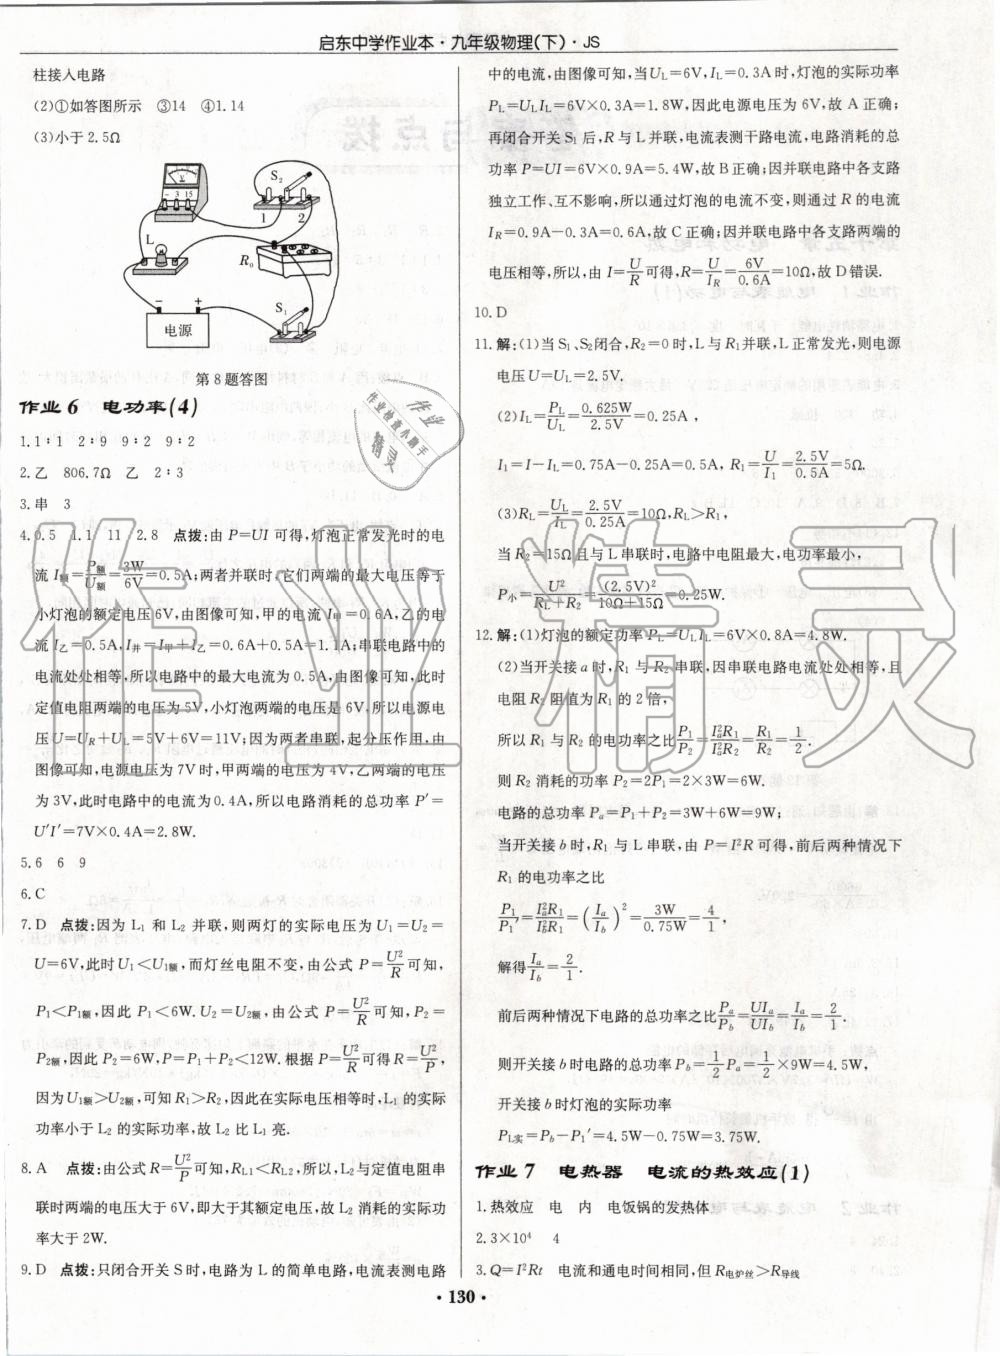 启东中学作业本·九年级物理(下)·JS
柱接入电路
(2)①如答图所示 ③14 ④1.14
(3)小于 2.5Ω
S₂
- 3 15
1 2
L
R₀
- +
电源
S₁
第 8 题答图
作业 6 电功率(4)
1.1∶1 2∶9 9∶2 9∶2
2.乙 806.7Ω 乙 2∶3
3.串 3
4.0.5 1.1 11 2.8 点拨:由 P=UI 可得,灯泡正常发光时的电
流 I额=P额/U额=3W/6V=0.5A;两者并联时,它们两端的最大电压等于
小灯泡的额定电压 6V,由图像可知,甲的电流 I甲=0.6A,乙的电
流 I乙=0.5A,I并=I甲+I乙=0.6A+0.5A=1.1A;串联电路中的
电流处处相等,所以电路中的最大电流为 0.5A,由图像可知,此时
定值电阻两端的电压为 5V,小灯泡两端的电压是 6V,所以电源电
压 U=UR+UL=5V+6V=11V;因为两者串联,起分压作用,由
图像可知,电源电压为 7V 时,甲两端的电压为 4V,乙两端的电压
为 3V,此时电路中的电流为 0.4A,所以电路消耗的总功率 P′=
U′I′=7V×0.4A=2.8W.
5.6 6 9
6.C
7.D 点拨:因为 L₁ 和 L₂ 并联,则两灯的实际电压为 U₁=U₂=
U=6V,此时 U₁<U₁额,而灯丝电阻不变,由公式 P=U²/R可知,
P₁<P₁额,因此 P₁<6W.U₂=U₂额,由公式 P=U²/R可知,P₂=
P₂额,因此 P₂=6W,P=P₁+P₂<12W.根据 P=U²/R可得 R=U²/P,
因为 U₁额>U₂额,可知 R₁>R₂,因此在实际电压相等时,L₁ 的实际
功率小于 L₂ 的实际功率,故 L₂ 比 L₁ 亮.
8.A 点拨:由公式 R=U²/P可知,RL1<RL2,所以,L₂ 与定值电阻串
联时两端的电压大于 6V,即大于其额定电压,故 L₂ 消耗的实际功
率大于 2W.
9.D 点拨:只闭合开关 S 时,电路为 L 的简单电路,电流表测电路
中的电流,由图像可知,当 UL=6V,IL=0.3A 时,灯泡的实际功率
PL=ULIL=6V×0.3A=1.8W,因此电源电压为 6V,故 A 正确;
再闭合开关 S₁ 后,R 与 L 并联,电流表测干路电流,电路消耗的总
功率 P=UI=6V×0.9A=5.4W,故 B 正确;因并联电路中各支路
独立工作、互不影响,所以通过灯泡的电流不变,则通过 R 的电流
IR=0.9A-0.3A=0.6A,故 C 正确;因并联电路中各支路两端的
电压相等,所以,由 I=U/R可得,R=U/IR=6V/0.6A=10Ω,故 D 错误.
10.D
11.解:(1)当 S₁、S₂闭合,R₂=0 时,L 与 R₁并联,L 正常发光,则电源
电压 U=UL=2.5V.
(2)IL=PL/UL=0.625W/2.5V=0.25A,
I₁=I-IL=0.75A-0.25A=0.5A,R₁=U/I₁=2.5V/0.5A=5Ω.
(3)RL=UL/IL=2.5V/0.25A=10Ω,RL>R₁,
当 R₂=15Ω 且与 L 串联时,电路中电阻最大,电功率最小,
P小=U²/(RL+R₂)=(2.5V)²/(10Ω+15Ω)=0.25W.
12.解:(1)灯泡的额定功率 PL=ULIL=6V×0.8A=4.8W.
(2)当开关接 a 时,R₁ 与 R₂ 串联,因串联电路电流处处相等,且
电阻 R₂ 阻值为 R₁ 的 2 倍,
所以 R₁ 与 R₂ 的电功率之比P₁/P₂=Ia²R₁/Ia²R₂=R₁/R₂=1/2.
则 R₂ 消耗的功率 P₂=2P₁=2×3W=6W.
电路的总功率 Pa=P₁+P₂=3W+6W=9W;
当开关接 b 时,R₁ 与 L 串联,由 P=I²R 可得,前后两种情况下
R₁ 的电功率之比
P₁/P₁′=Ia²R₁/Ib²R₁=(Ia/Ib)²=3W/0.75W=4/1,
解得Ia/Ib=2/1.
前后两种情况下电路的总功率之比Pa/Pb=UIa/UIb=Ia/Ib=2/1.
则开关接 b 时电路的总功率 Pb=1/2Pa=1/2×9W=4.5W,
开关接 b 时灯泡的实际功率
PL实=Pb-P₁′=4.5W-0.75W=3.75W.
作业 7 电热器 电流的热效应(1)
1.热效应 电 内 电饭锅的发热体
2.3×10⁴ 4
3.Q=I²Rt 电流和通电时间相同,但 R电炉丝>R导线
·130·
作业精灵
作业
作业检查小助手
精灵